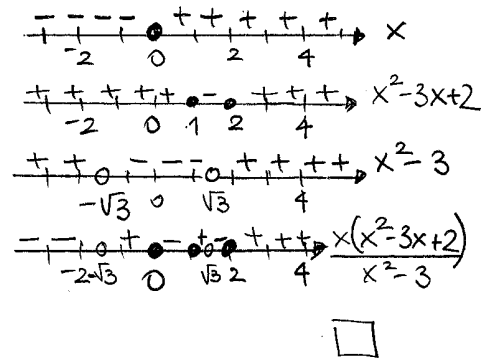 − − − − + + + + + x
−2 0 2 4
+ + + + + − + + + x²−3x+2
−2 0 1 2 4
+ + − − − + + + + x²−3
−√3 0 √3 4
− − + − + − + + + x(x²−3x+2)/x²−3
−2 −√3 0 √3 2 4